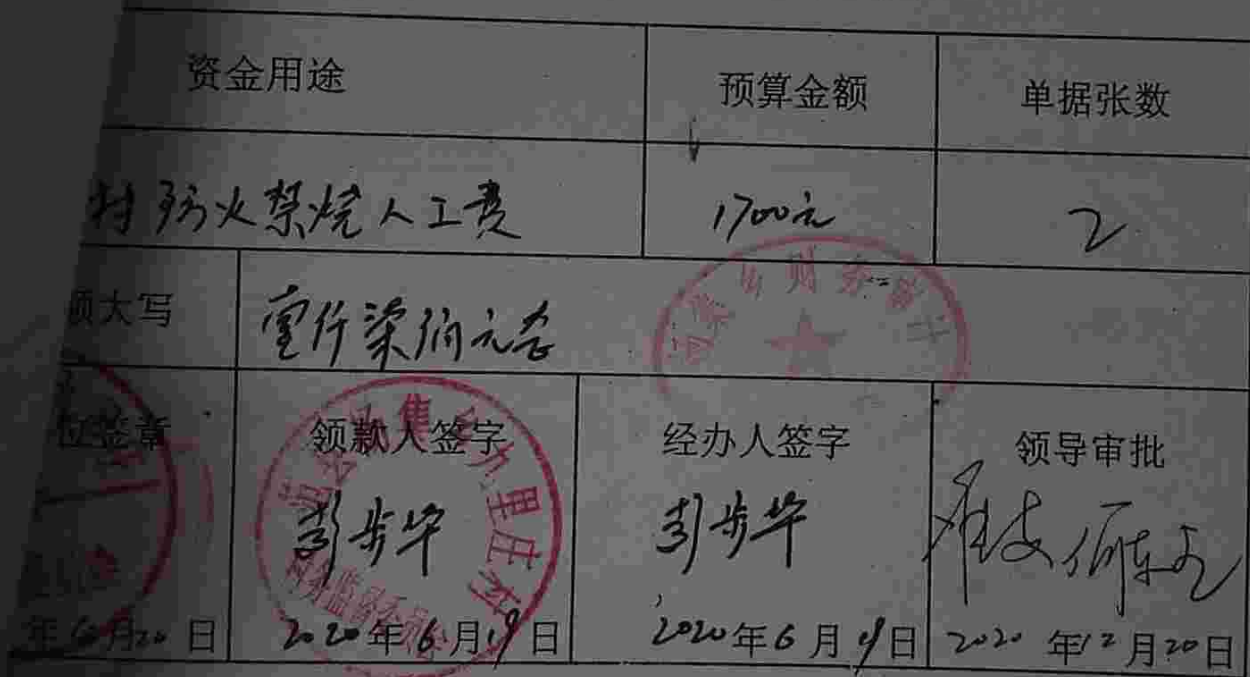 资金用途 预算金额 单据张数
村防火禁烧人工费 1700元 2
额大写 壹仟柒佰元整
位签章 领款人签字 经办人签字 领导审批
彭步华 彭步华
年6月20日 2020年6月19日 2020年6月19日 2020年12月20日
集乡财务审计
集乡九里庄村
村务监督委员会